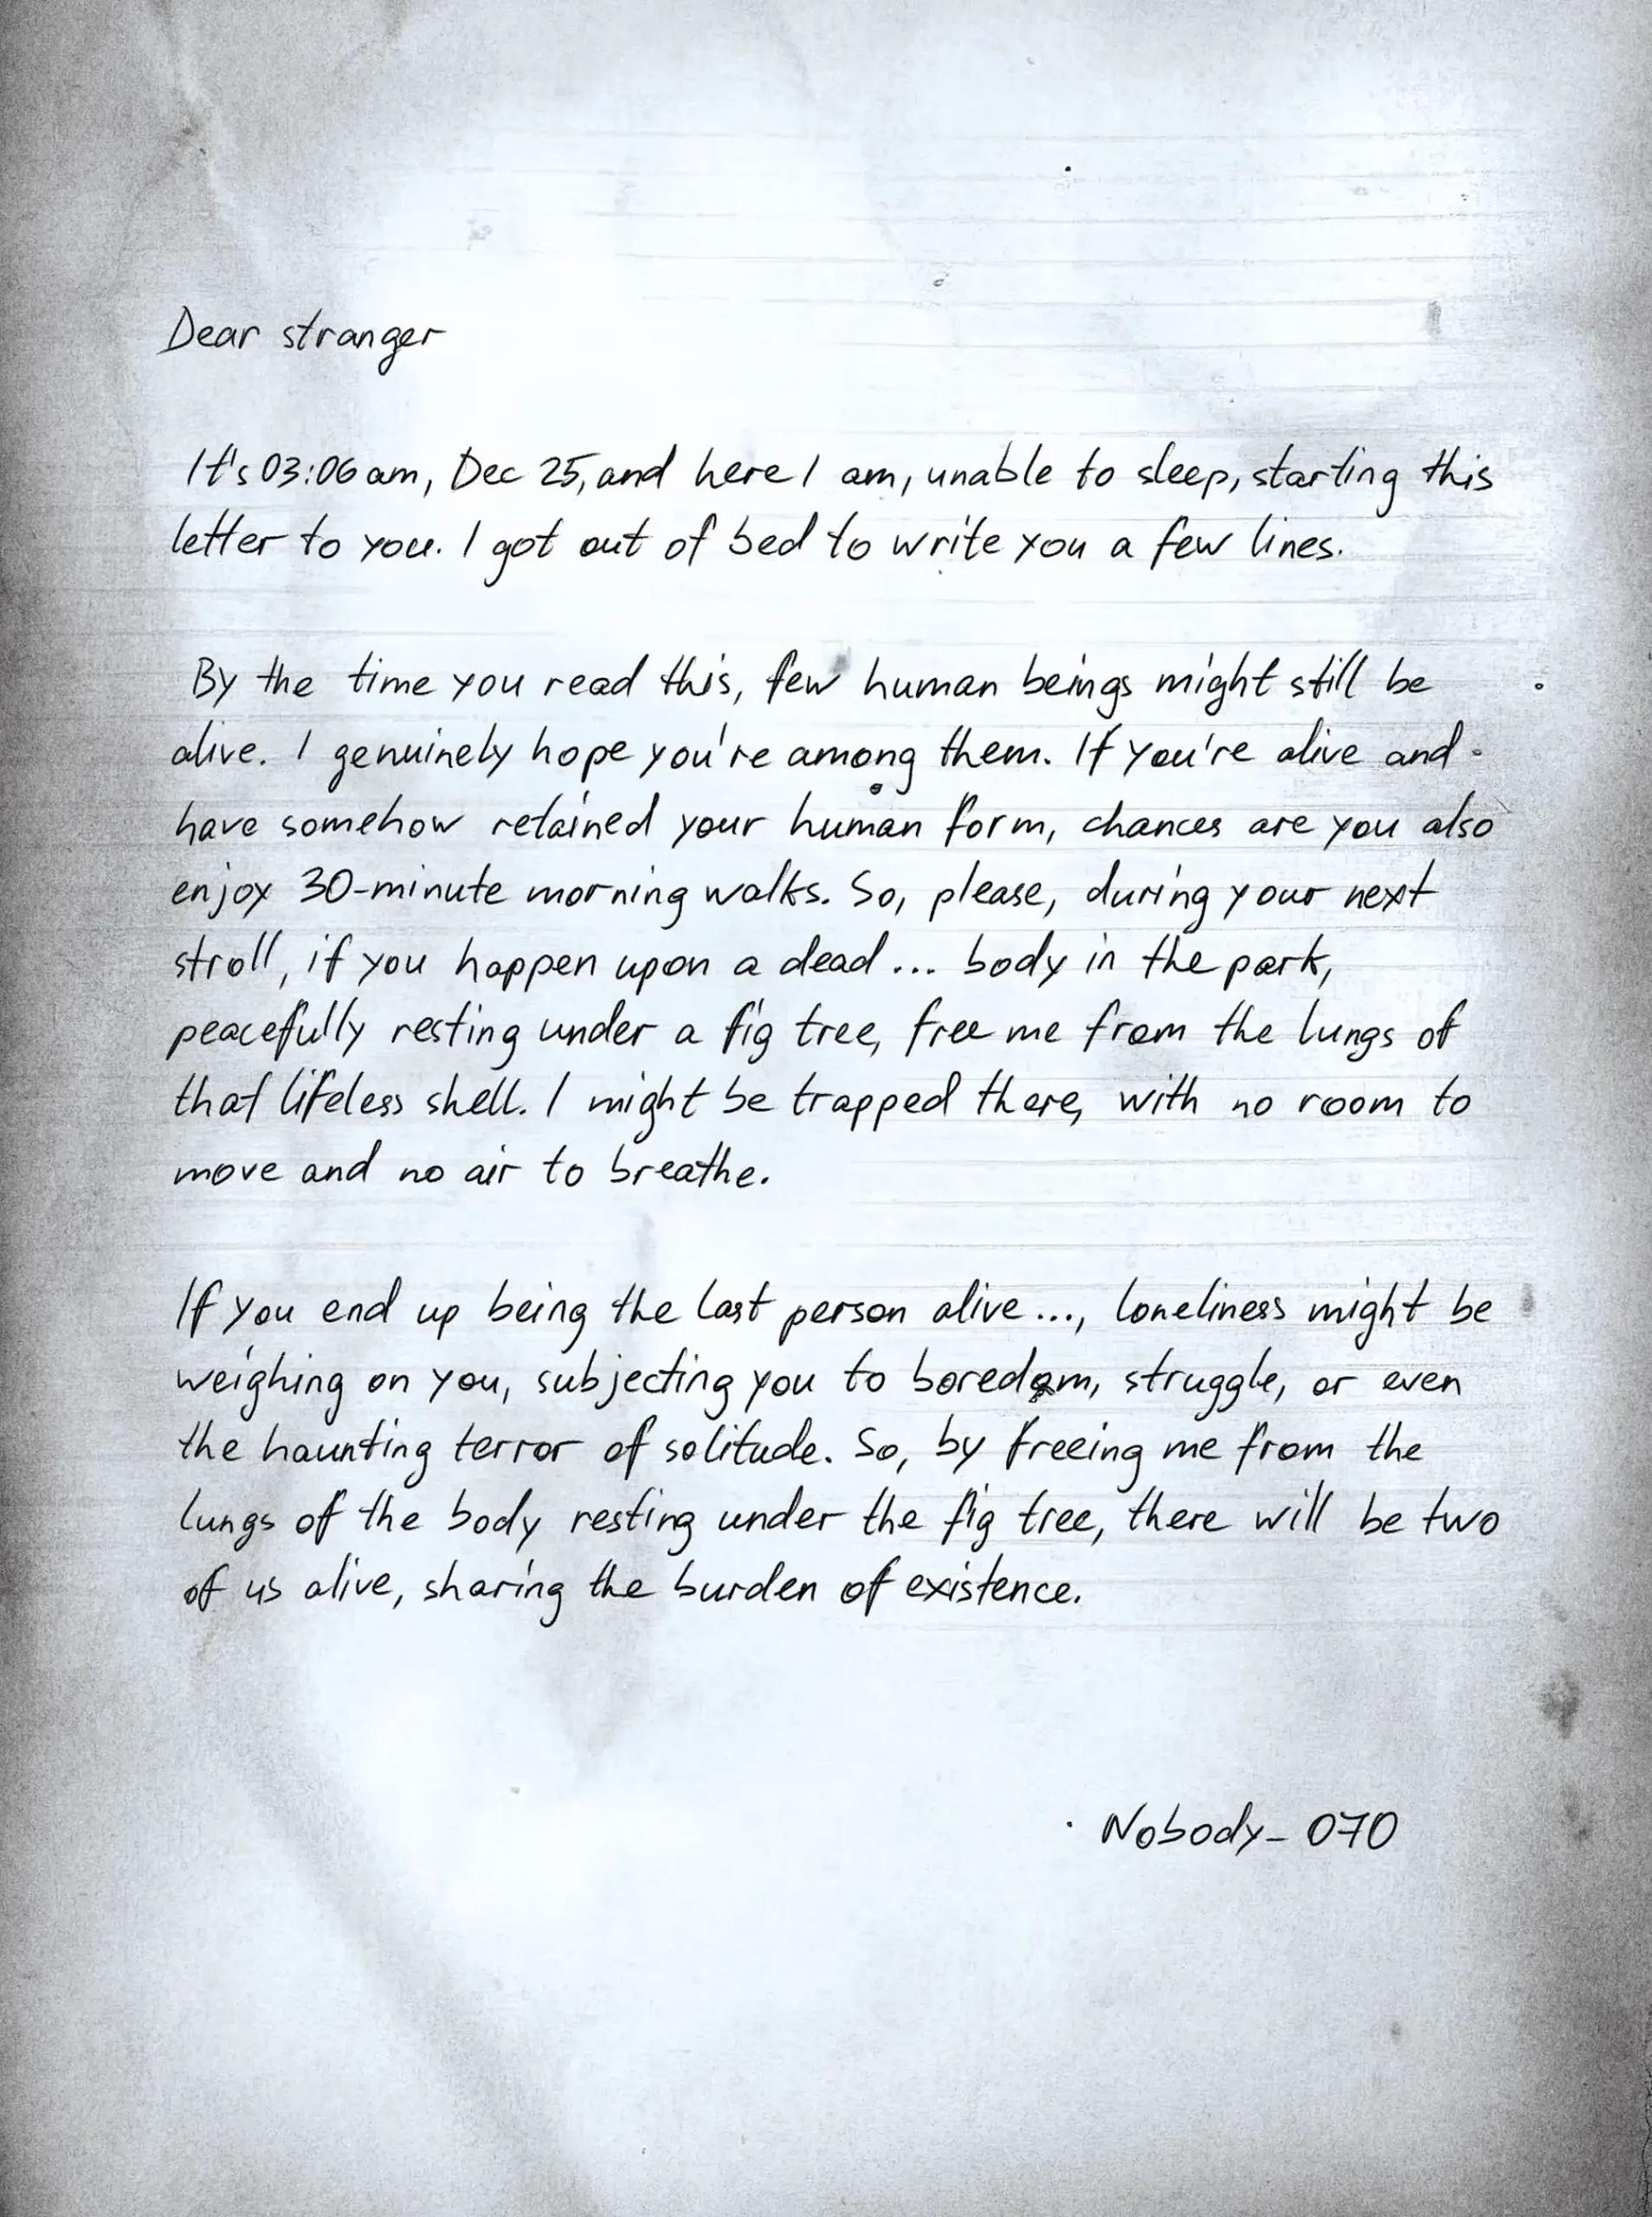 Dear stranger
It's 03:06 am, Dec 25, and here I am, unable to sleep, starting this
letter to you. I got out of bed to write you a few lines.
By the time you read this, few human beings might still be
alive. I genuinely hope you're among them. If you're alive and
have somehow retained your human form, chances are you also
enjoy 30-minute morning walks. So, please, during your next
stroll, if you happen upon a dead... body in the park,
peacefully resting under a fig tree, free me from the lungs of
that lifeless shell. I might be trapped there, with no room to
move and no air to breathe.
If you end up being the last person alive..., loneliness might be
weighing on you, subjecting you to boredom, struggle, or even
the haunting terror of solitude. So, by freeing me from the
lungs of the body resting under the fig tree, there will be two
of us alive, sharing the burden of existence.
Nobody_070